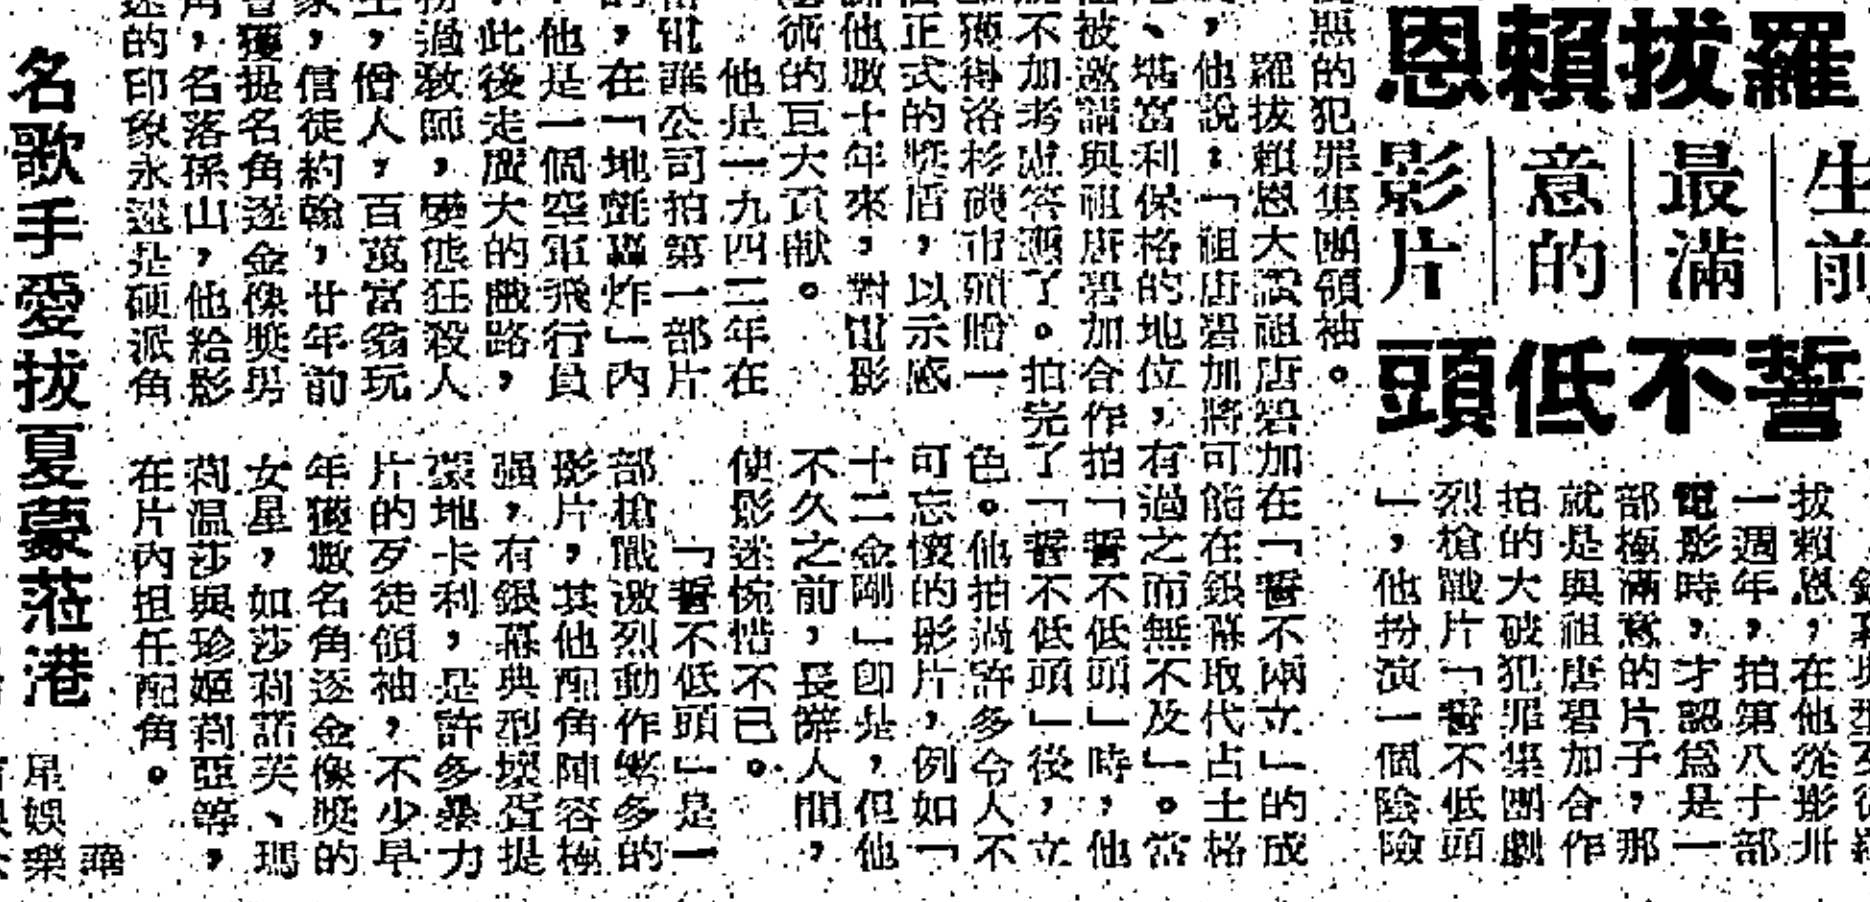 羅拔賴恩
生前
最滿
意的
影片
誓不低頭
拔賴恩，在他從影卅
一週年，拍第八十部
電影時，才認爲是一
部極滿意的片子，那
就是與祖唐碧加合作
拍的大破犯罪集團劇
烈槍戰片「誓不低頭
」，他扮演一個陰險
惡的犯罪集團領袖。
羅拔賴恩大讚祖唐碧加在「誓不兩立」的成
，他說：「祖唐碧加將可能在銀幕取代占士格
、堪富利保格的地位，有過之而無不及」。當
被邀請與祖唐碧加合作拍「誓不低頭」時，他
不加考慮答應了。拍完了「誓不低頭」後，立
獲得洛杉磯市頒贈一
正式的獎盾，以示感
他數十年來，對電影
術的巨大貢献。
他是一九四二年在
電華公司拍第一部片
，在「地氈轟炸」内
他是一個空軍飛行員
此後走廣大的戲路，
過教師，變態狂殺人
，僧人，百萬富翁玩
，信徒約翰，廿年前
獲提名角逐金像獎男
，名落孫山，他給影
的印象永遠是硬派角
色。他拍過許多令人不
可忘懷的影片，例如「
十二金剛」卽是，但他
不久之前，長辭人間，
使影迷惋惜不已。
「誓不低頭」是一
部槍戰激烈動作繁多的
影片，其他配角陣容極
强，有銀幕典型壞蛋提
張地卡利，是許多暴力
片的歹徒領袖，不少早
年獲數名角逐金像獎的
女星，如莎莉諾芙、瑪
莉温莎與珍姬莉亞等，
在片内担任配角。
名歌手愛拔夏蒙蒞港
華
星娛樂